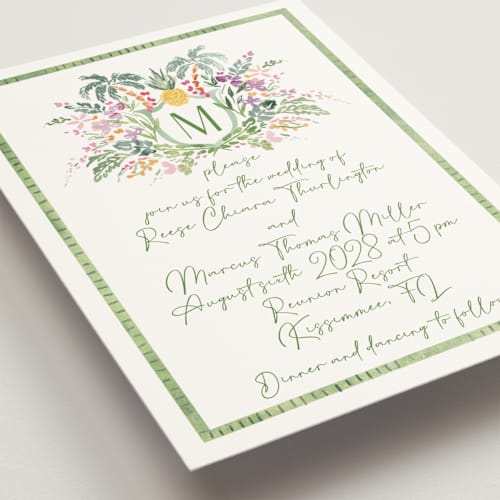 M
please
join us for the wedding of
Reese Chiara Thurlington
and
Marcus Thomas Miller
August sixth 2028 at 5 pm
Reunion Resort
Kissimmee, FL
Dinner and dancing to follow